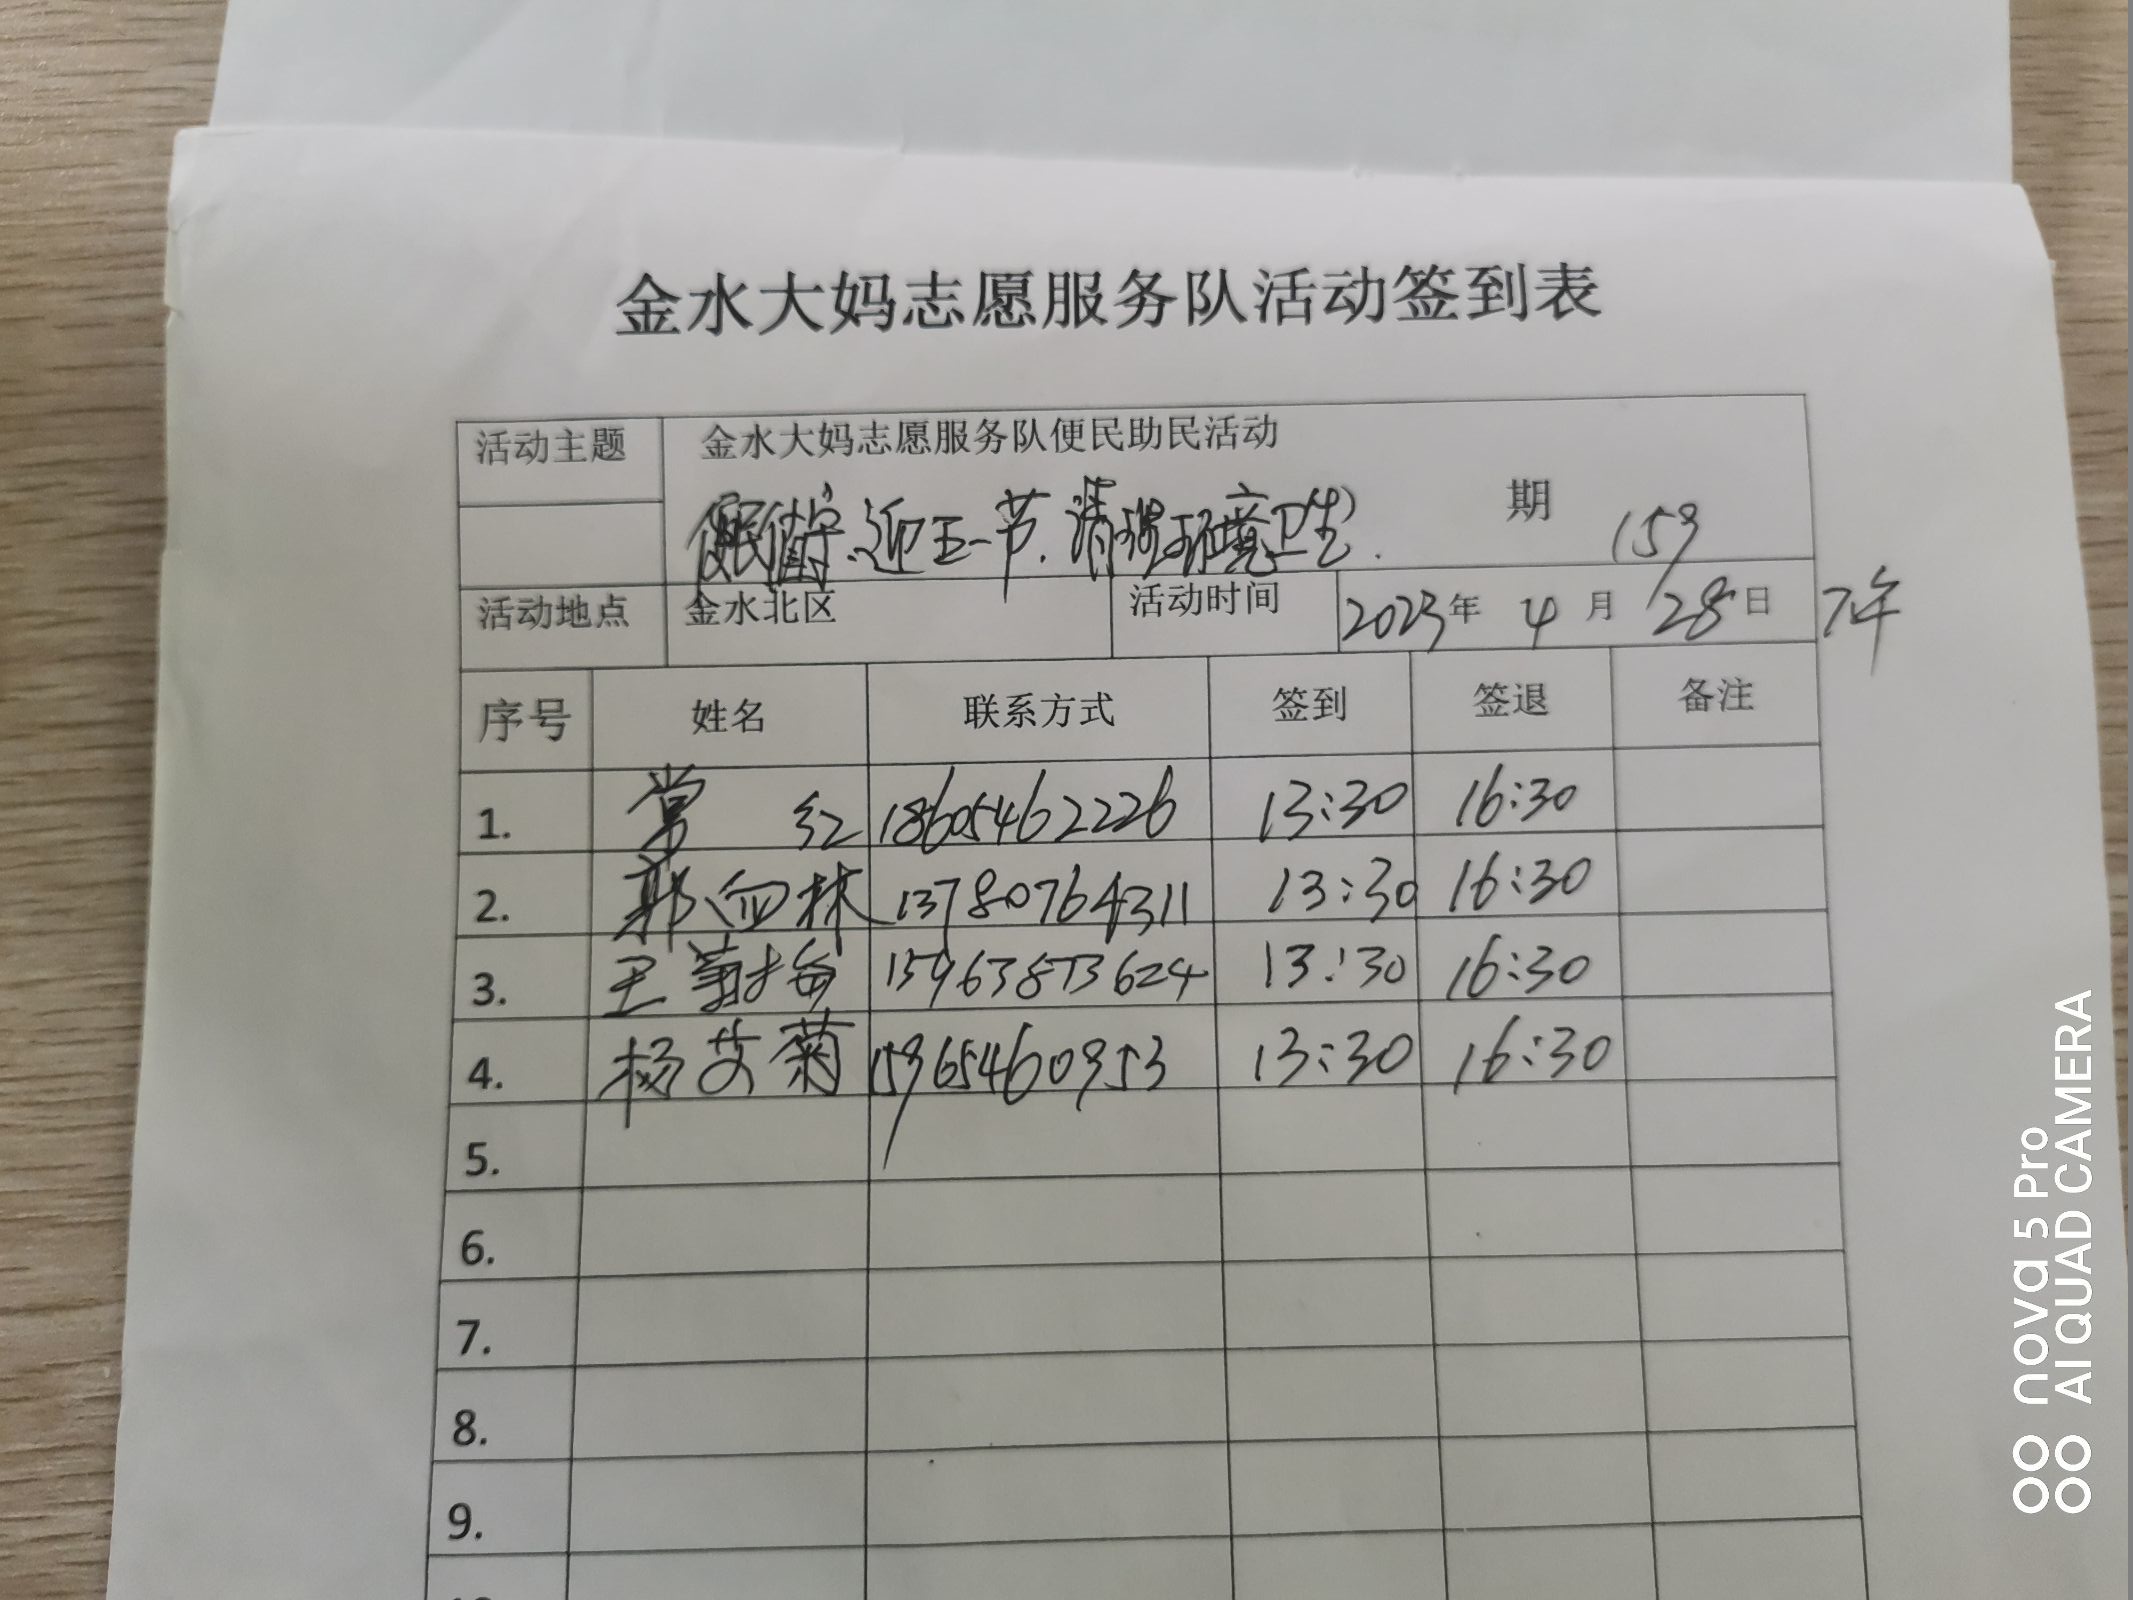 金水大妈志愿服务队活动签到表
活动主题 金水大妈志愿服务队便民助民活动
迎五一节.清理环境卫生. 期 159
活动地点 金水北区 活动时间 2023年 4月 28日 7年
序号 姓名 联系方式 签到 签退 备注
1. 常红 18605462226 13:30 16:30
2. 郭向林 13780764311 13:30 16:30
3. 王菊梅 15963873624 13:30 16:30
4. 杨艾菊 15965460953 13:30 16:30
5.
6.
7.
8.
9.
nova 5 Pro
AI QUAD CAMERA